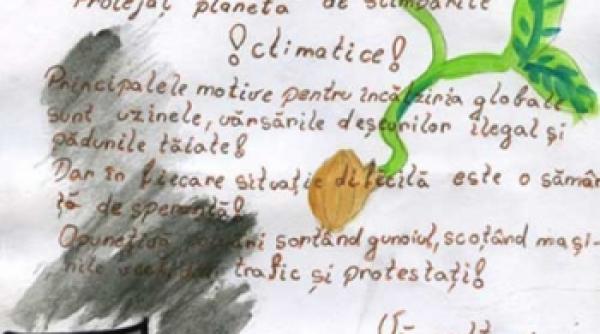 Protejați planeta de schimbările
!climatice!
Principalele motive pentru încălziria globală
sunt uzinele, vărsările deșeurilor ilegal și
pădurile tăiate!
Dar în fiecare situație dificilă este o sămân-
ță de speranță!
sortând gunoiul, scoțând mași-
nile trafic și protestați!